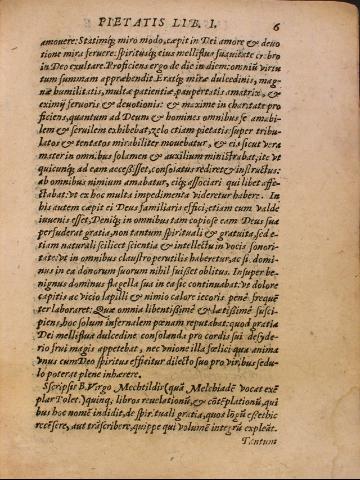 PIETATIS LIB. I. 6
amovere: Statimq́; miro modo, cœpit in Dei amore & devo
tione mira fervere: spiritusq́; eius melliflua suavitate crebro
in Deo exultare. Proficiens ergo de die in diem: omniũ virtu
tum summam appræhendit. Eratq́; miræ dulcedinis, mag-
næ humilitatis, multæ patientiæ, paupertatis amatrix, &
eximij fervoris & devotionis: & maxime in charitate pro
ficiens, quantum ad Deum & homines omnibus se amabi-
lem & servilem exhibebat, zelo etiam pietatis: super tribu-
latos & tentatos mirabiliter movebatur, & eis sicut vera
mater in omnibus solamen & auxilium ministrabat, ite vt
quicunq́; ad eam accessisset, consolatus rediret & instructus:
ab omnibus nimium amabatur, eiq́; associari qui libet affe-
ctabat: vt ex hoc multa impedimenta videretur habere. In
his autem cœpit ei Deus familiaris effici, etiam cum valde
iuvenis esset, Deniq́; in omnibus tam copiose eam Deus sua
perfuderat gratia, non tantum spirituali & gratuita, sed e-
tiam naturali scilicet scientia & intellectu in vocis sonori-
tate: vt in omnibus claustro perutilis haberetur, ac si domi-
nus in ea donorum suorum nihil fuisset oblitus. Insuper be-
nignus dominus flagella sua in ea sic continuabat: vt dolore
capitis ac vicio lapilli & nimio calore iecoris penè frequẽ
ter laboraret: Quæ omnia libentissimè & lætissimè susci-
piens, hoc solum infernalem pœnam reputabat: quod gratia
Dei melliflua dulcedine consolanda pro cordis sui desyde-
rio frui magis appetebat, nec vnione illa fœlici qua anima
vnus cum Deo spiritus efficitur dilecto suo pro viribus sedu-
lo poterat plene inhærere.
Scripsit B. Virgo Mechtildis (quã Melchiadẽ vocat exẽ
plar Tolet.) quinq́; libros revelationũ, & cõtẽplationũ, qui
bus hoc nomẽ indidit, de spirituali gratia, quos lõgũ esset hic
recẽsere, aut trãscribere, quippe qui volumẽ integrũ expleãt.
Tantum